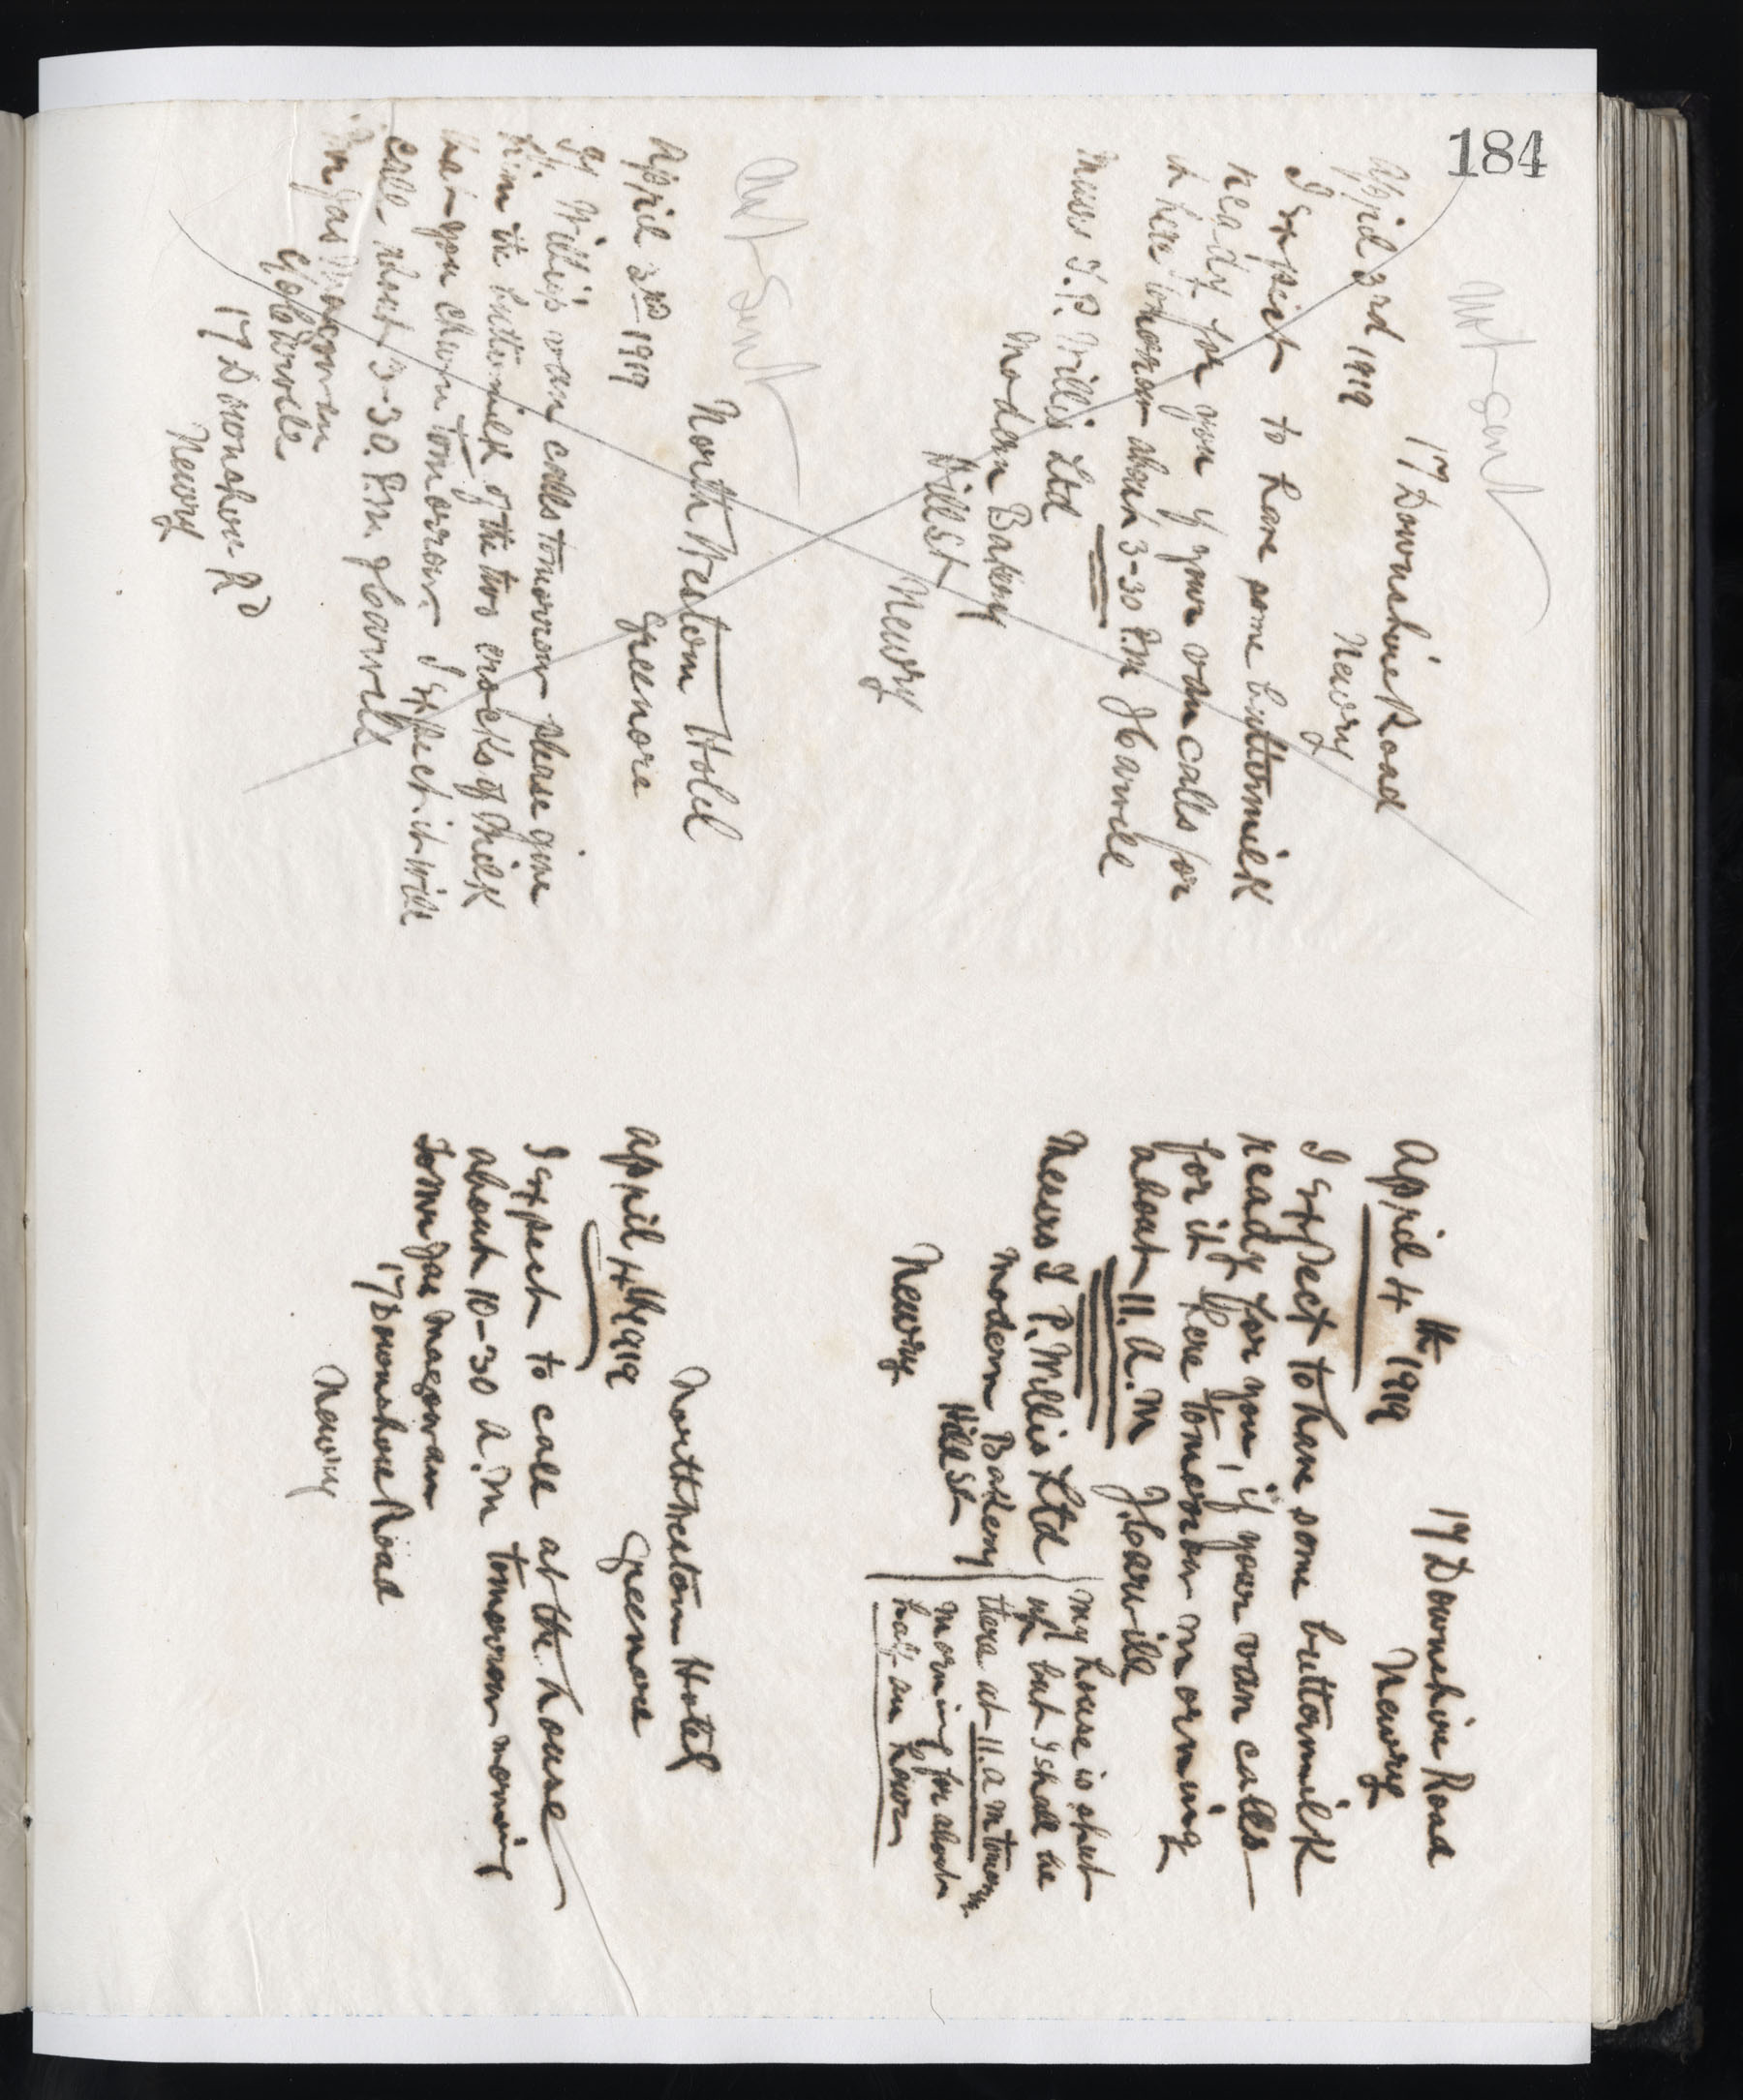 184
Not Sent
17 Downshire Road
Newry
April 3rd 1919
I Expect to have some buttermilk
ready for you if your van calls for
it here tomorrow about 3-30 P.M J Carvill
Messrs T. P. Willis Ltd
Modern Bakery
Hill St
Newry
Not Sent
North Western Hotel
Greenore
April 3rd 1919
If Willis van calls tomorrow please give
him the buttermilk of the two crocks of Milk
that you churn tomorrow I Expect it will
call about 3-30. P.M. J Carvill
Mrs Jas Magowan
c/o Carvill
17 Downshire Rd
Newry
17 Downshire Road
Newry
April 4th 1919
I Expect to have some buttermilk
ready for you, if your van calls
for it here tomorrow morning
about 11. A. M J. Carvill
Messrs T P. Willis Ltd
Modern Bakery
Hill St
Newry
My house is shut
up but I shall be
there at 11. a m tomorrow
morning for about
half an hour
North Western Hotel
Greenore
April 4th 1919
I Expect to call at the house
about 10-30 A.M tomorrow morning
Jas Magowan
17 Downshire Road
Newry